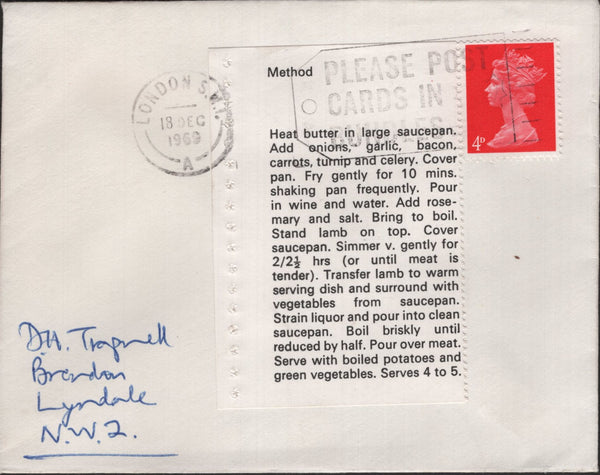 LONDON S.W.1.
18 DEC
1969
A
PLEASE POST
CARDS IN
BUNDLES
4D
Method
Heat butter in large saucepan.
Add onions, garlic, bacon,
carrots, turnip and celery. Cover
pan. Fry gently for 10 mins.
shaking pan frequently. Pour
in wine and water. Add rose-
mary and salt. Bring to boil.
Stand lamb on top. Cover
saucepan. Simmer v. gently for
2/2½ hrs (or until meat is
tender). Transfer lamb to warm
serving dish and surround with
vegetables from saucepan.
Strain liquor and pour into clean
saucepan. Boil briskly until
reduced by half. Pour over meat.
Serve with boiled potatoes and
green vegetables. Serves 4 to 5.
Brendon
Lyndale
N.W.2.